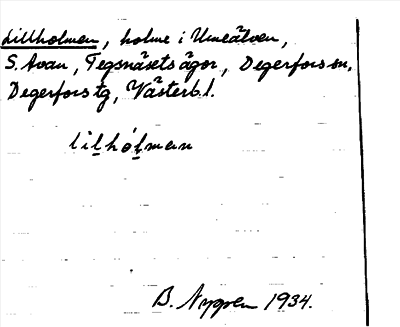 Lillholmen, holme i Umeälven,
S. Avan, Tegsnäsets ägor, Degerfors sn,
Degerfors tg, Västerb. l.
lilhólman
B. Nygren 1934.